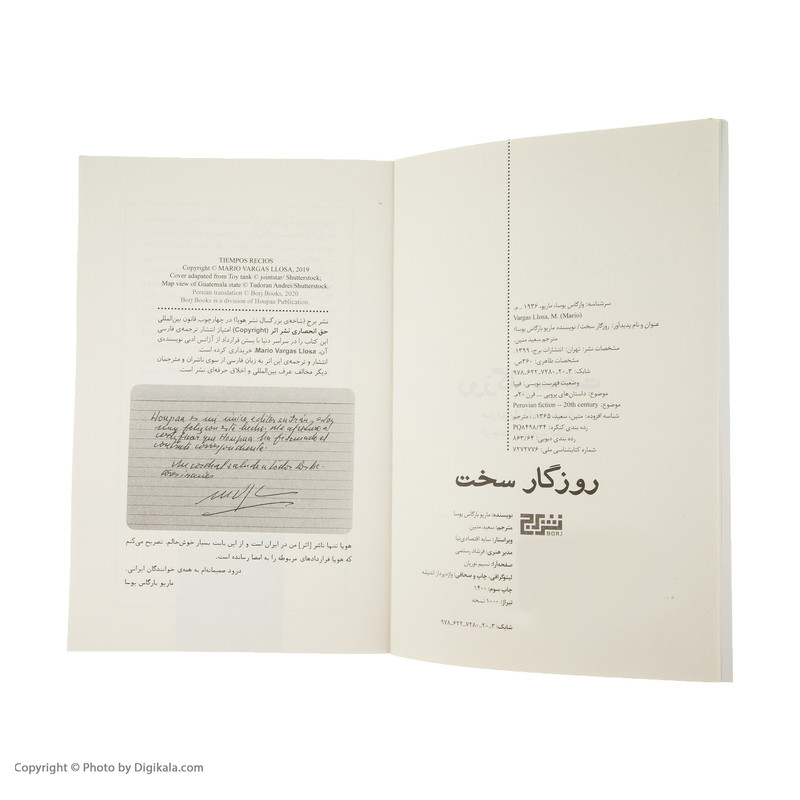 TIEMPOS RECIOS
Copyright © MARIO VARGAS LLOSA, 2019
Cover adapated from Toy tank © jointstar/ Shutterstock;
Map view of Guatemala state © Tudoran Andrei/Shutterstock.
Persian translation © Borj Books, 2020
Borj Books is a division of Houpaa Publication.
نشر برج (شاخه‌ی بزرگسال نشر هوپا) در چهارچوب قانون بین‌المللی
حق انحصاری نشر اثر (Copyright) امتیاز انتشار ترجمه‌ی فارسی
این کتاب را در سراسر دنیا با بستن قرارداد از آژانس ادبی نویسنده‌ی
آن، Mario Vargas Llosa، خریداری کرده است.
انتشار و ترجمه‌ی این اثر به زبان فارسی از سوی ناشران و مترجمان
دیگر مخالف عرف بین‌المللی و اخلاق حرفه‌ای نشر است.
Houpaa es mi único editor en Irán, estoy
muy feliz con este hecho.
certificar que Houpaa ha firmado el
contrato correspondiente.
Un cordial saludo a todos los lec-
tores iraníes
هوپا تنها ناشر [آثار] من در ایران است و از این بابت بسیار خوش‌حالم. تصریح می‌کنم
که هوپا قراردادهای مربوطه را به امضا رسانده است.
درود صمیمانه‌ام به همه‌ی خوانندگان ایرانی.
ماریو بارگاس یوسا
سرشناسه: وارگاس یوسا، ماریو، ۱۹۳۶ ـ م.
Vargas Llosa, M. (Mario)
عنوان و نام پدیدآور: روزگار سخت/ نویسنده ماریو بارگاس یوسا؛
مترجم سعید متین.
مشخصات نشر: تهران: انتشارات برج، ۱۳۹۹.
مشخصات ظاهری: ۳۶۰ص.
شابک: ۳ـ۲۰ـ۷۲۸۰ـ۶۲۲ـ۹۷۸
وضعیت فهرست نویسی: فیپا
موضوع: داستان‌های پرویی -- قرن ۲۰م.
موضوع: Peruvian fiction -- 20th century
شناسه افزوده: متین، سعید، ۱۳۶۵ـ، مترجم
رده بندی کنگره: PQ۸۴۹۸/۳۴
رده بندی دیویی: ۸۶۳/۶۴
شماره کتابشناسی ملی: ۷۲۷۲۷۷۶
روزگار سخت
نشر برج
BORJ
نویسنده: ماریو بارگاس یوسا
مترجم: سعید متین
ویراستار: سایه اقتصادی‌نیا
مدیر هنری: فرشاد رستمی
صفحه‌آرا: نسیم نوریان
لیتوگرافی، چاپ و صحافی: واژه‌پرداز اندیشه
چاپ سوم: ۱۴۰۰
تیراژ: ۱۰۰۰ نسخه
شابک: ۳ـ۲۰ـ۷۲۸۰ـ۶۲۲ـ۹۷۸
Copyright © Photo by Digikala.com